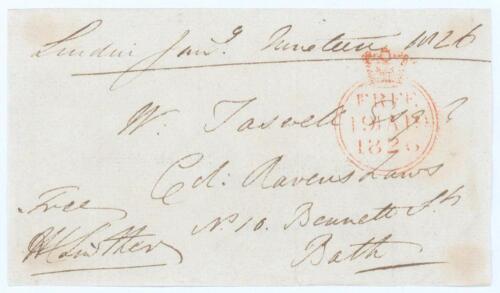 London Jany. Nineteen 1826
W. Taswell Esqre
Col: Ravenshaws
No 10. Bennett St
Bath
Free
FREE
19 JA 19
1826